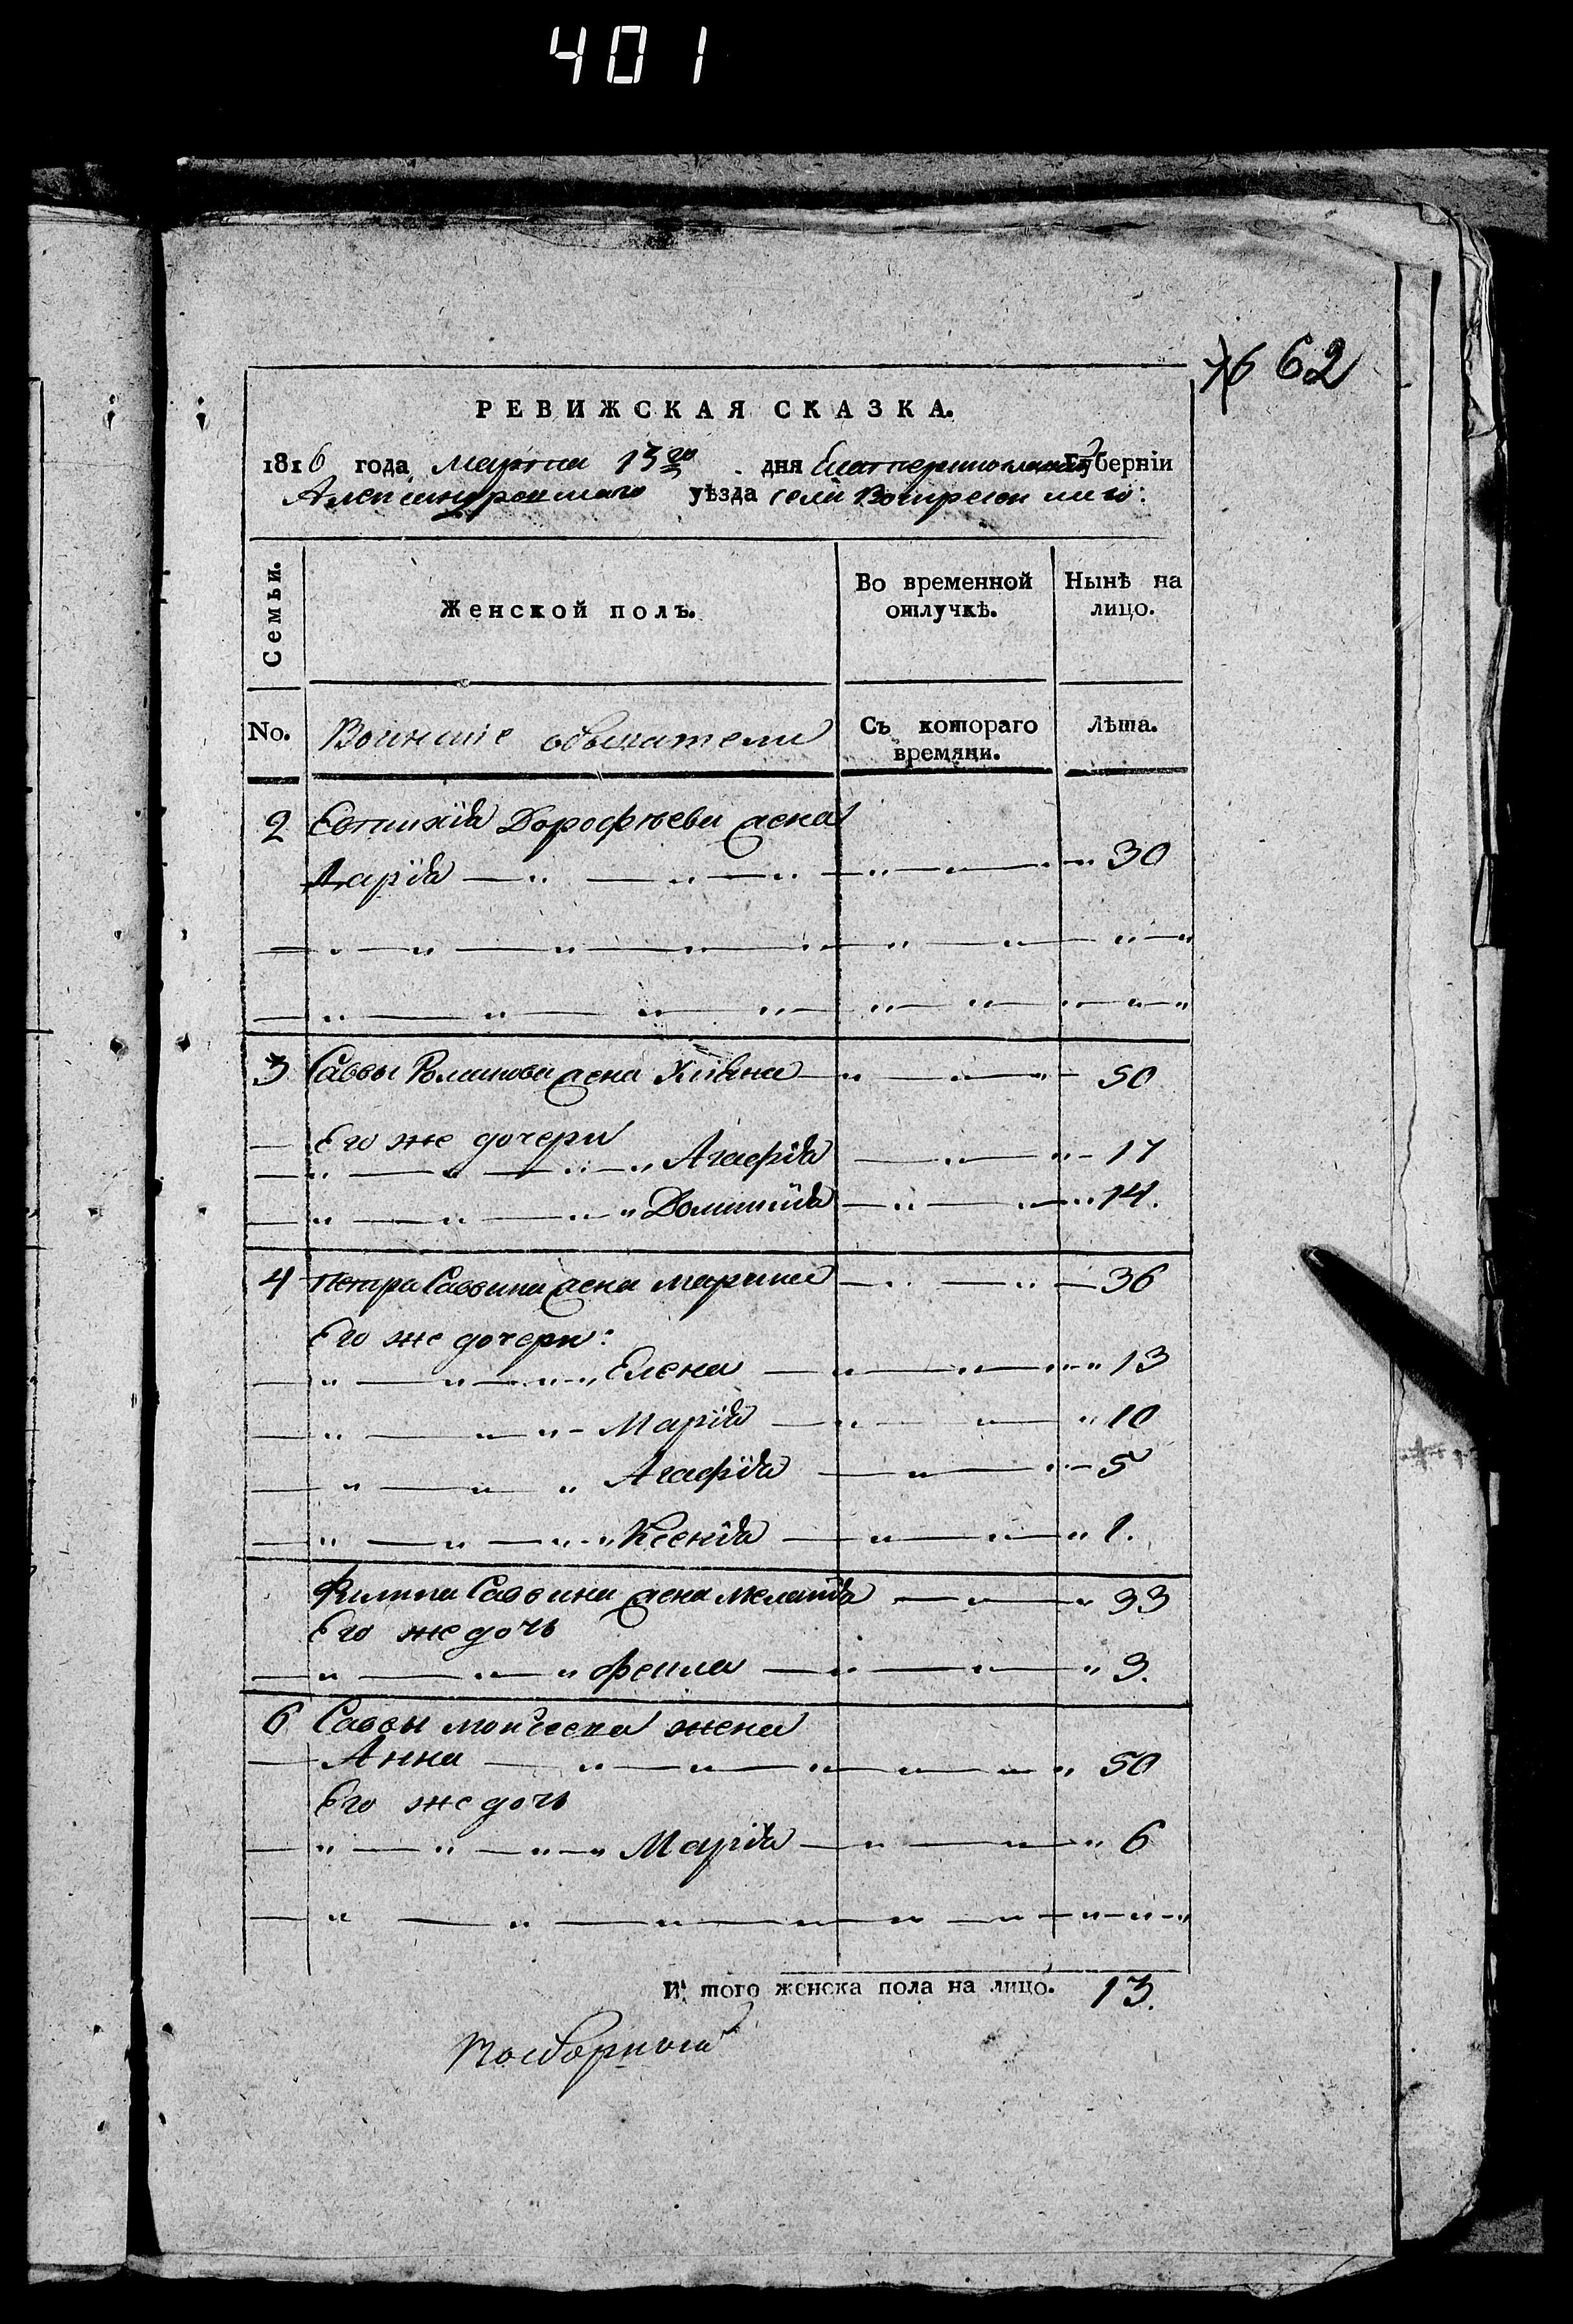 401
76 62
РЕВИЖСКАЯ СКАЗКА.
1816 года Марта 13го дня Екатеринославской Губерніи
Александровскаго уѣзда села Воскресенскаго:
Семьи. Женской полъ. Во временной отлучкѣ. Ныне на лицо.
No. Воинскіе обыватели Съ котораго времяни. Лѣта.
2 Евтихія Дорофѣева жена
Дарія 30
3 Саввы Романова жена Уліяна 50
Его же дочери
Агафія 17
Домникія 14.
4 Петра Саввина жена Марина 36
Его же дочери:
Елена 13
Марія 10
Агафія 5
Ксенія 1.
Филипа Саввина жена Меланія 33
Его же дочь
Фекла 3.
6 Саввы Моисеева жена
Анна 50
Его же дочь
Марія 6
И того женска пола на лицо. 13.